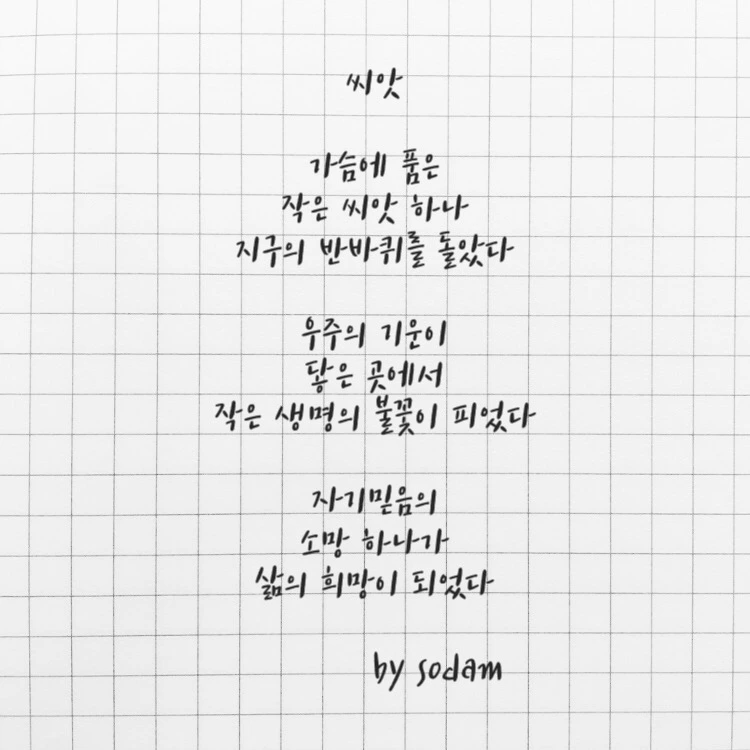 씨앗
가슴에 품은
작은 씨앗 하나
지구의 반바퀴를 돌았다
우주의 기운이
닿은 곳에서
작은 생명의 불꽃이 피었다
자기믿음의
소망 하나가
삶의 희망이 되었다
by sodam